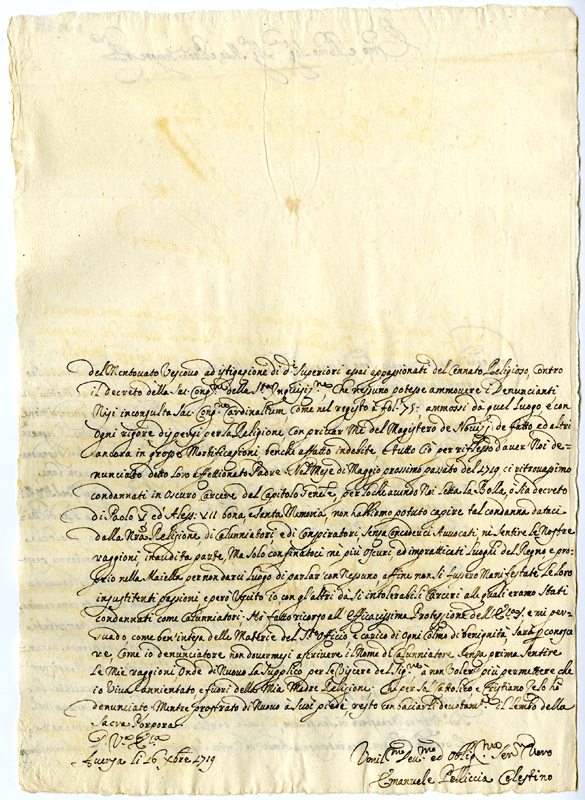 del Mentovato Vescovo ad istigatione di d.i Superiori assai appassionati del Cennato Religioso, Contro
il decreto della Sac: Cong.ne della S.ta Inquisiz.ne, Che nessuno potesse ammovere i Denuncianti
Nisi inconsulta Sac: Cong.ne Cardinalium Come nel registo à fol: 75: ammossi da quel Luogo, e con
Ogni rigore dispersi per la Religione, Con privar Me del Magistero de Novizzi de fatto, ed altri
ancora in grosse Mortificationi, benche affatto indebite, e tutto Ciò per riflesso d'aver Noi de-
nunciato detto Loro affettionato Padre, e Nel Mese di Maggio prossimo passato del 1719 ci ritrovassimo
condannati in Oscuro Carcere del Capitolo Gen.le, per loche avendo Noi Letta La Bolla, ò sia decreto
di Paolo V ed Aless: VII bona, e Santa Memoria, non habbiamo potuto capire tal condanna dataci
dalla N.ra Religione, di Calunniatori, e di Conspiratori, Senza Concederci Avvocati, ne Sentire Le Nostre
raggioni, inaudita parte, Ma solo confinatoci ne più oscuri, ed impratticati Luoghi del Regno e pro-
prio nella Maiella per non darci Luogo di parlar con Nessuno, affine non Si fussero Manifestate Le Loro
insussistenti passioni, e però Uscito io con gl'altri da Si intolerabili Carceri alli quali eramo Stati
condannati come Calunniatori: Hò fatto ricorso all' Efficacissima Protezione dell' E.V., e mi per-
suado, come ben intesa della Materie del S.to Officio, e carico di Ogni Colmo di benignità, Sarà p conosce-
re Come io denunciatore non dovermesi ascrivere il Nome di Calunniatore, Senza prima Sentire
Le Mie raggioni, Onde di Nuovo La Supplico per le Viscere del Sig.re a non Voler più permettere che
io Viva annientato, e fuori della Mia Madre Religione: Che per sa Cattolico, e Cristiano zelo hò
denunciato, Mentre prostrato di Nuovo a Suoi piedi, resto con baciarli devotam.te il Lembo della
Sacra Porpora:
D. V.ra Em.za
Aversa Li 26 Xbre: 1719
Umil.mo Dev.mo ed Oblig.mo Ser.re Vero
Emanuele Pelliccia Celestino